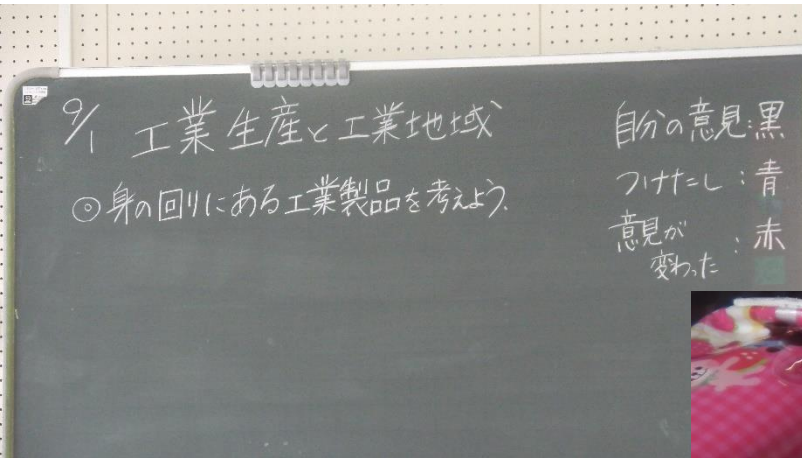 9/1 工業生産と工業地域
◎身の回りにある工業製品を考えよう.
自分の意見:黒
つけたし:青
意見が
変わった:赤